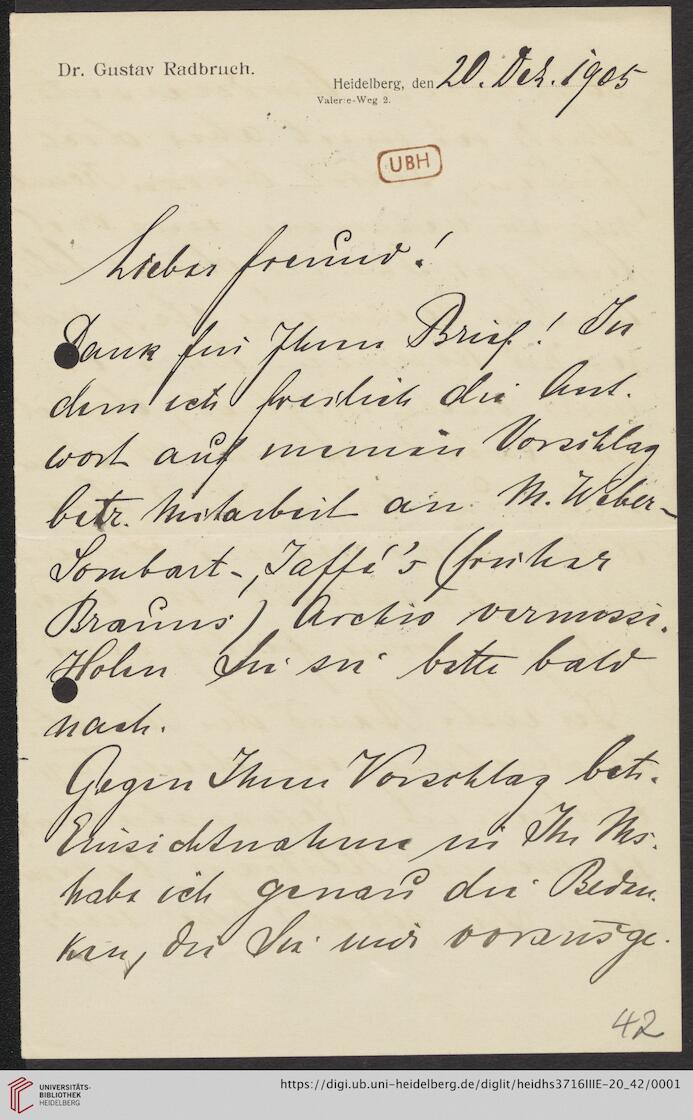 Dr. Gustav Radbruch.
Heidelberg, den 20. Dez. 1905
Valerie-Weg 2.
UBH
Lieber Freund!
Dank für Ihren Brief! In
dem ich freilich die Ant-
wort auf meinen Vorschlag
betr. Mitarbeit an M. Weber-
Sombart-, Jaffé's (früher
Brauns) Archiv vermisse.
Holen Sie sie bitte bald
nach.
Gegen Ihren Vorschlag betr.
Einsichtnahme in Ihr Ms.
habe ich genau die Beden-
ken, die Sie mir vorausge-
42
UNIVERSITÄTS-
BIBLIOTHEK
HEIDELBERG
https://digi.ub.uni-heidelberg.de/diglit/heidhs3716IIIE-20_42/0001